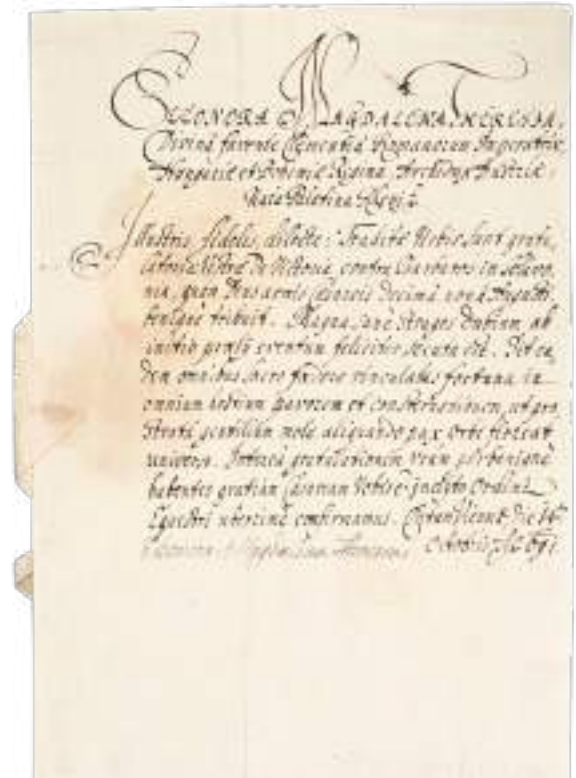 ELEONORA MAGDALENA THERESIA,
Divinâ favente Clementiâ Romanorum Imperatrix
Hungariæ et Bohemiæ Regina Archidux Austriæ
Nata Palatina Rheni &
Illustris, fidelis, dilecte: Traditæ Nobis sunt gratu,
latoriæ Vestræ de Victoria, contra Barbaros in Sclavo,
nia, quam Deus armis Cæsareis decimâ nonâ Augusti
benigne tribuit. Magna sane strages dubium ab
initio pugnæ eventum feliciter secuta est. Det ea,
dem omnibus sacro fœdere vinculatis fortuna in
omnium hostium pavorem et consternationem, ut pro,
strata gentilium mole aliquando pax Orbi floreat
universo. Interea gratulationem Vram perbenigne
habentes gratiam Cæsaream Vobis et inclyto Ordini
Equestri uberrime confirmamus. Viennæ die 16
Octobris 1691
Eleonora Magdalena Theresia